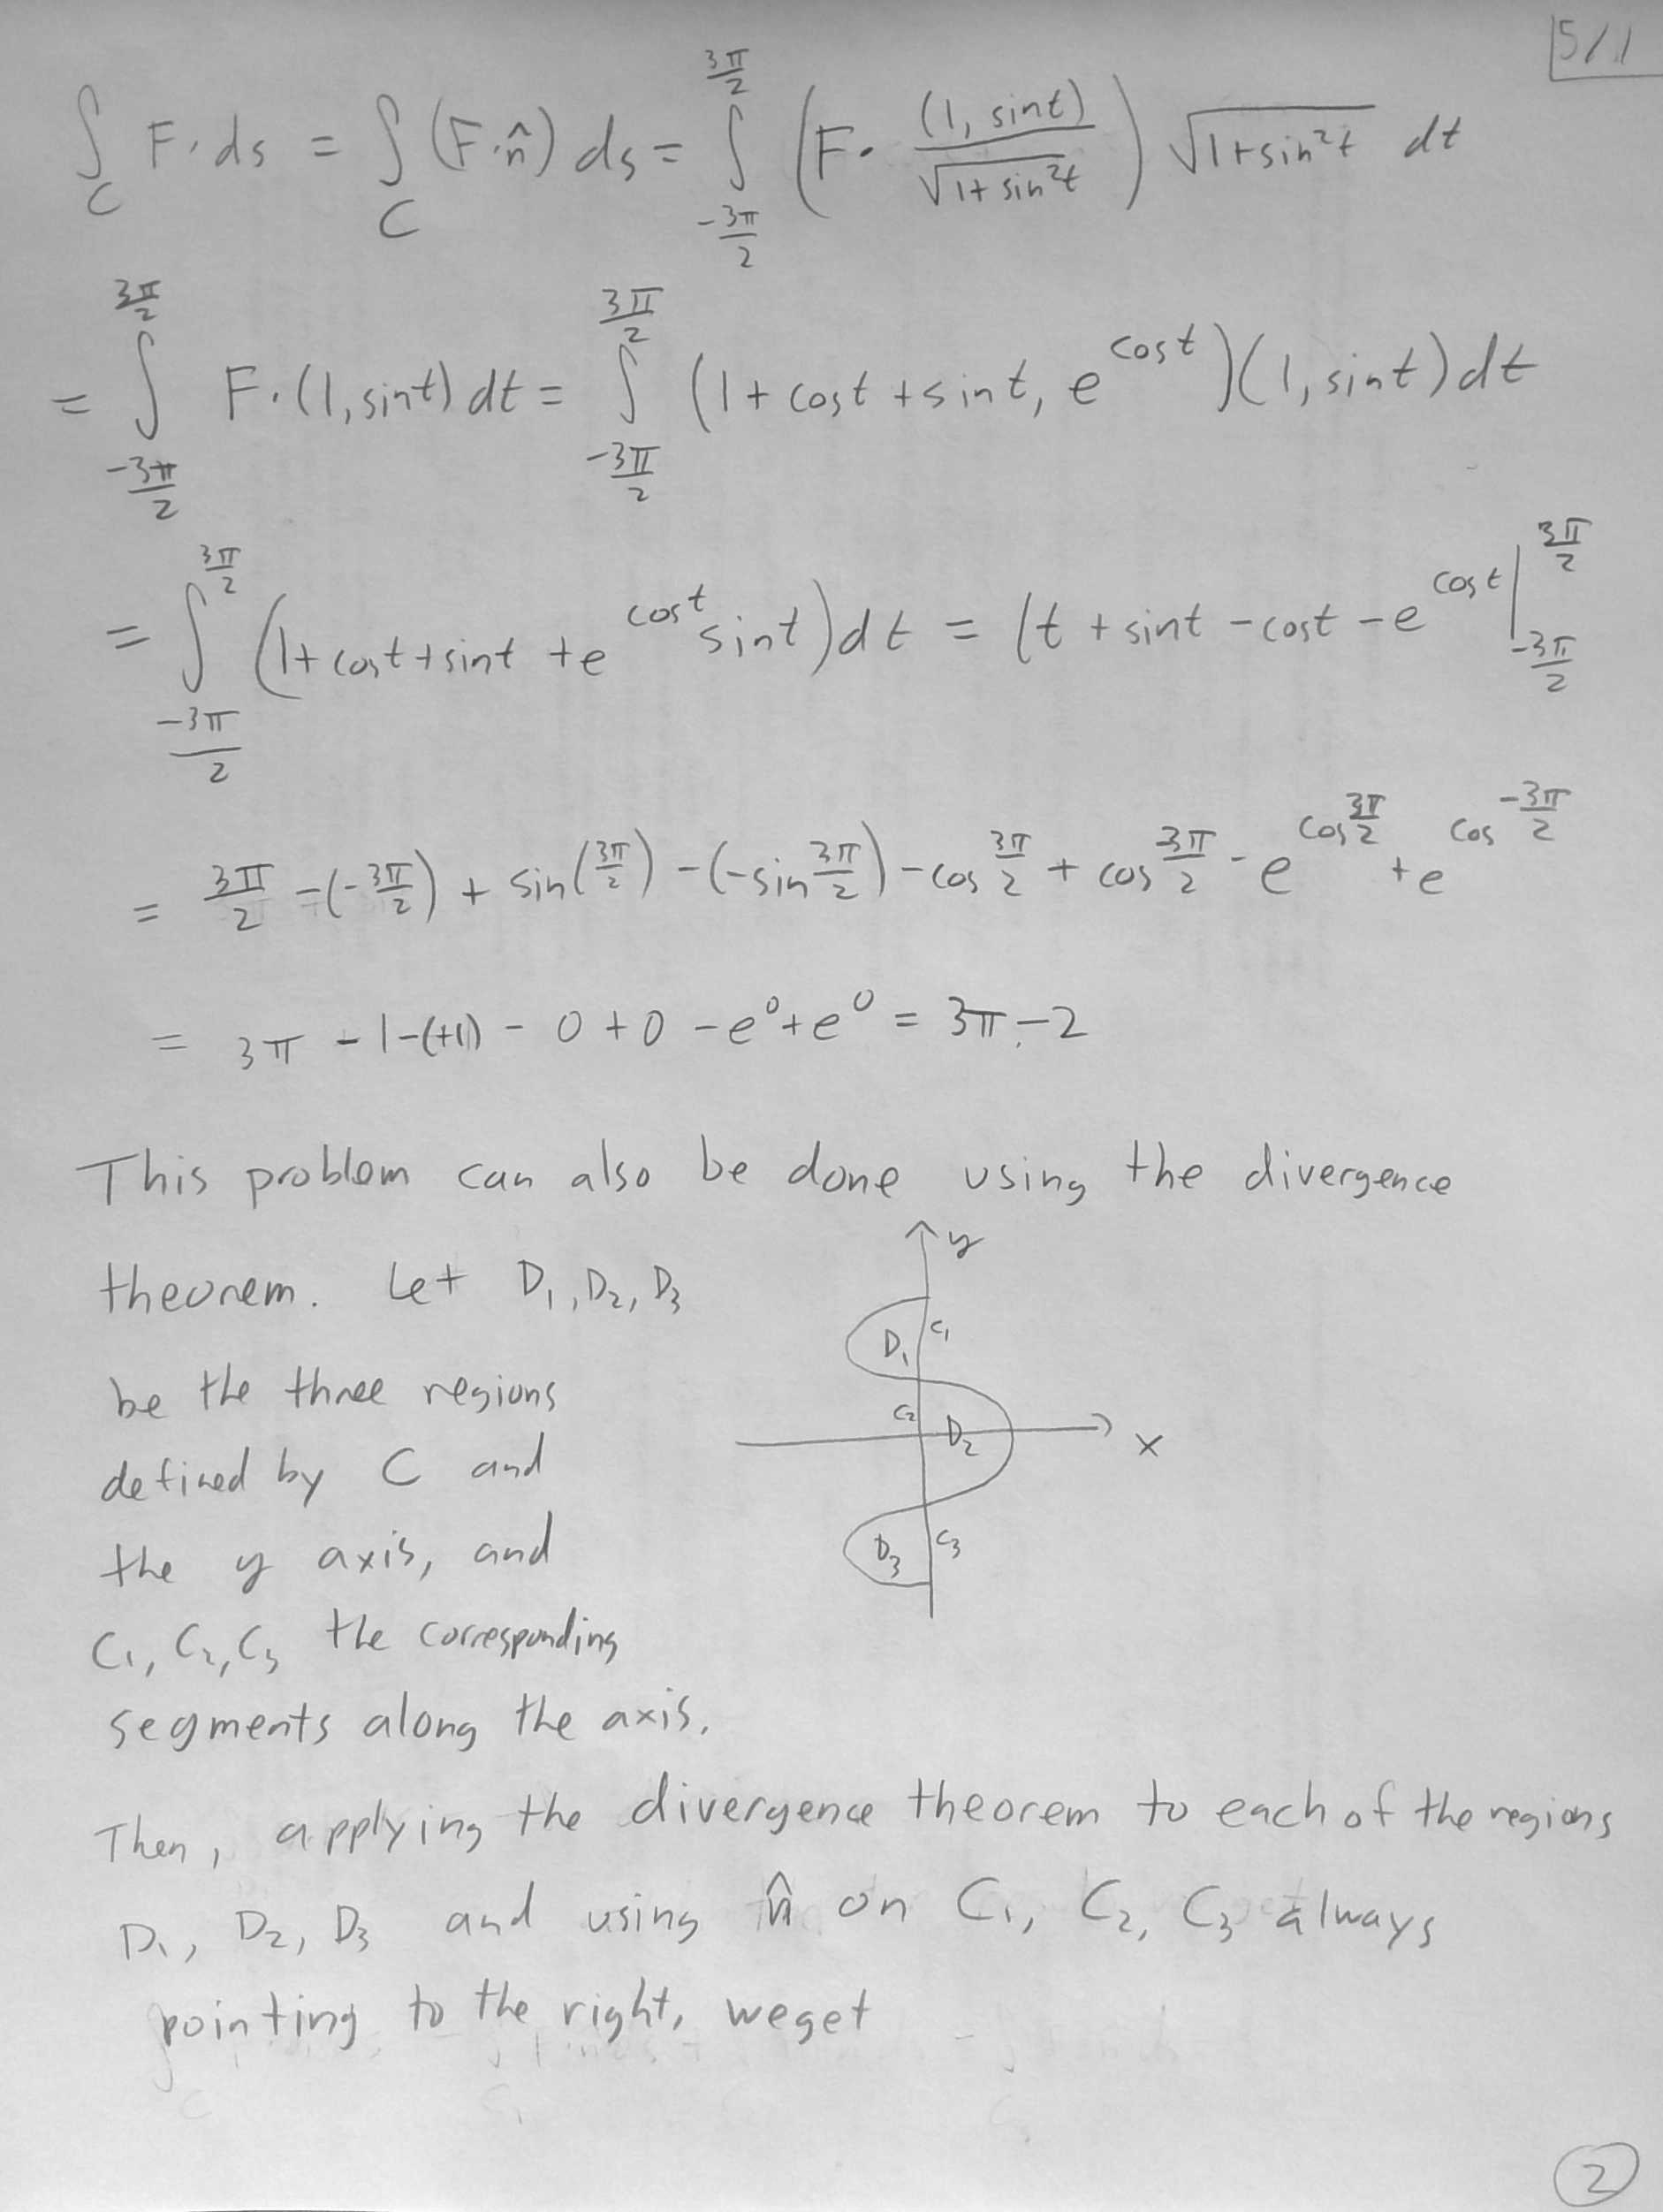 5/1
∫_C F·ds = ∫_C (F·n̂) ds = ∫_{-3π/2}^{3π/2} (F· (1, sint)/√(1+sin²t)) √(1+sin²t) dt
= ∫_{-3π/2}^{3π/2} F·(1, sint) dt = ∫_{-3π/2}^{3π/2} (1 + cost + sint, e^{cost})(1, sint) dt
= ∫_{-3π/2}^{3π/2} (1 + cost + sint + e^{cost} sint) dt = (t + sint - cost - e^{cost} |_{-3π/2}^{3π/2}
= 3π/2 - (-3π/2) + sin(3π/2) - (-sin 3π/2) - cos 3π/2 + cos 3π/2 - e^{cos 3π/2} + e^{cos -3π/2}
= 3π - 1 - (+1) - 0 + 0 - e⁰ + e⁰ = 3π - 2
This problem can also be done using the divergence
theorem. Let D₁, D₂, D₃
be the three regions
defined by C and
the y axis, and
C₁, C₂, C₃ the corresponding
segments along the axis.
y
D₁ C₁
C₂ D₂
x
D₃ C₃
Then, applying the divergence theorem to each of the regions
D₁, D₂, D₃ and using n̂ on C₁, C₂, C₃ always
pointing to the right, we get
2